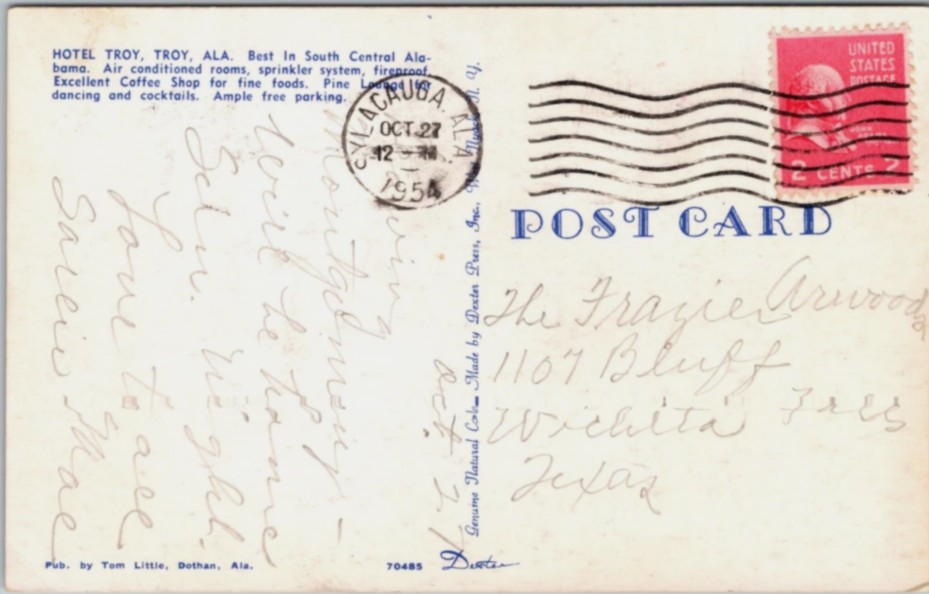 HOTEL TROY, TROY, ALA. Best In South Central Ala-
bama. Air conditioned rooms, sprinkler system, fireproof.
Excellent Coffee Shop for fine foods. Pine Lounge for
dancing and cocktails. Ample free parking.
SYLACAUGA, ALA.
OCT 27
12
1954
UNITED
STATES
POSTAGE
JOHN
ADAMS
2 CENTS 2
POST CARD
Oct 27
Montgomery -
Will be home
Sun. night.
Love to all
The Frazie Arwoods
1107 Bluff
Wichita Falls
Texas
Genuine Natural Color Made by Dexter Press, Inc. N. Y.
Pub. by Tom Little, Dothan, Ala.
70485
Dexter